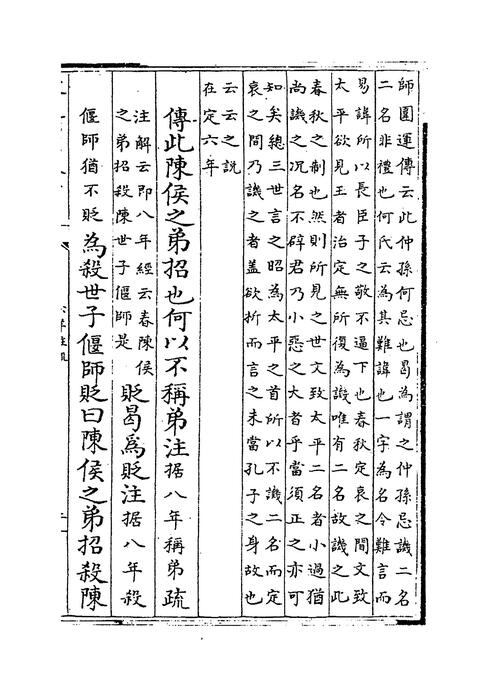 師圍運傳云此仲孫何忌也曷為謂之仲孫忌譏二名
二名非禮也何氏云為其難諱也一字為名令難言而
易諱所以長臣子之敬不逼下也春秋定哀之間文致
太平欲見王者治定無所復為譏唯有二名故譏之此
春秋之制也然則所見之世文致太平二名者小過猶
尚譏之况名不辟君乃小惡之大者乎當須正之亦可
知矣總三世言之昭為太平之首所以不譏二名而定
哀之間乃譏之者盖欲折而言之未當孔子之身故也
云云之說
在定六年
傳此陳侯之弟招也何以不稱弟注據八年稱弟疏
注解云即八年經云春陳侯
之弟招殺陳世子偃師是
貶曷為貶注據八年殺
偃師猶不貶為殺世子偃師貶曰陳侯之弟招殺陳